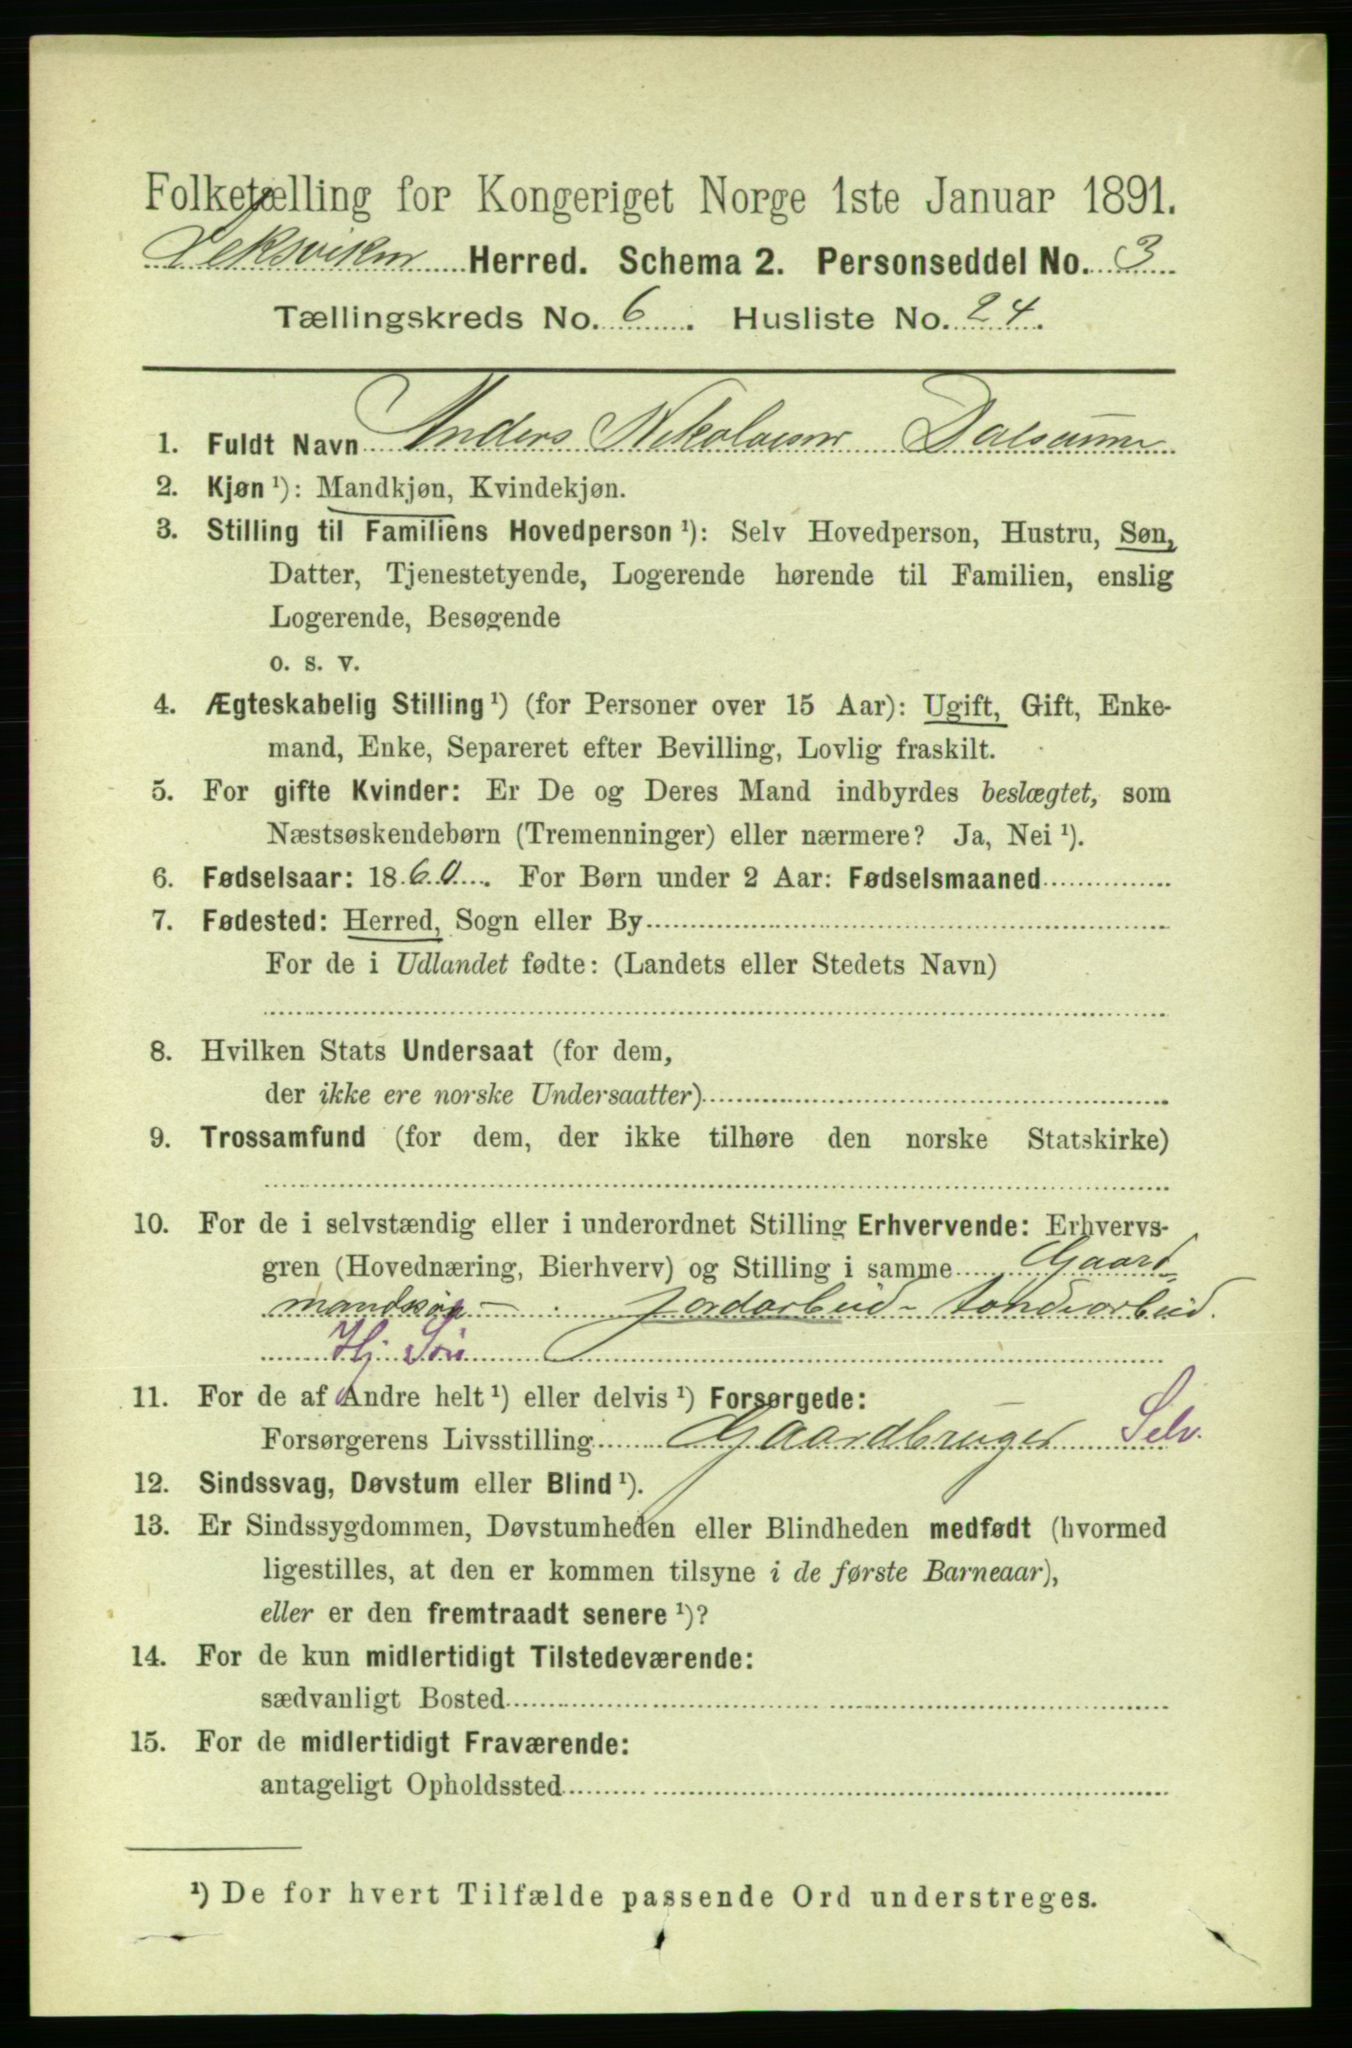 Folketælling for Kongeriget Norge 1ste Januar 1891.
Leksviken Herred. Schema 2. Personseddel No. 3
Tællingskreds No. 6. Husliste No. 24.
1. Fuldt Navn Anders Nikolaisen
2. Kjøn ¹): Mandkjøn, Kvindekjøn.
3. Stilling til Familiens Hovedperson ¹): Selv Hovedperson, Hustru, Søn,
Datter, Tjenestetyende, Logerende hørende til Familien, enslig
Logerende, Besøgende
o. s. v.
4. Ægteskabelig Stilling ¹) (for Personer over 15 Aar): Ugift, Gift, Enke-
mand, Enke, Separeret efter Bevilling, Lovlig fraskilt.
5. For gifte Kvinder: Er De og Deres Mand indbyrdes beslægtet, som
Næstsøskendebørn (Tremenninger) eller nærmere? Ja, Nei ¹).
6. Fødselsaar: 1860. For Børn under 2 Aar: Fødselsmaaned
7. Fødested: Herred, Sogn eller By
For de i Udlandet fødte: (Landets eller Stedets Navn)
8. Hvilken Stats Undersaat (for dem,
der ikke ere norske Undersaatter)
9. Trossamfund (for dem, der ikke tilhøre den norske Statskirke)
10. For de i selvstændig eller i underordnet Stilling Erhvervende: Erhvervs-
gren (Hovednæring, Bierhverv) og Stilling i samme Gaard
mandssøn - Jordarbeid -
Hj. Søn
11. For de af Andre helt ¹) eller delvis ¹) Forsørgede:
Forsørgerens Livsstilling Gaardbruger Selv.
12. Sindssvag, Døvstum eller Blind ¹).
13. Er Sindssygdommen, Døvstumheden eller Blindheden medfødt (hvormed
ligestilles, at den er kommen tilsyne i de første Barneaar),
eller er den fremtraadt senere ¹)?
14. For de kun midlertidigt Tilstedeværende:
sædvanligt Bosted
15. For de midlertidigt Fraværende:
antageligt Opholdssted
¹) De for hvert Tilfælde passende Ord understreges.